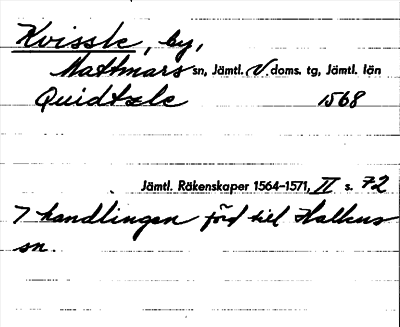 Kvissle, by,
Mattmars sn, Jämtl. V. doms. tg, Jämtl. län
Quidtzle 1568
Jämtl. Räkenskaper 1564-1571, II s. 72
I handlingen förd till Hallens
sn.